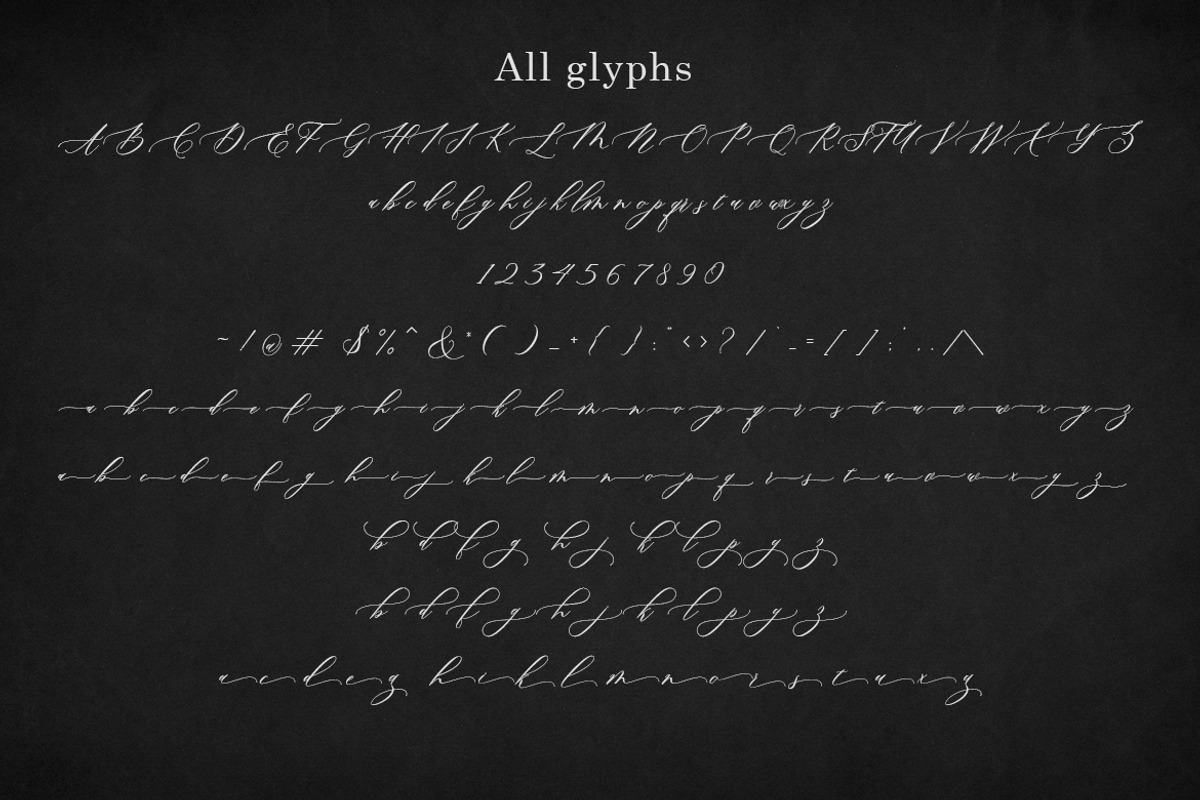 All glyphs
A B C D E F G H I J K L M N O P Q R S T U V W X Y Z
a b c d e f g h i j k l m n o p q r s t u v w x y z
1 2 3 4 5 6 7 8 9 0
~ ! @ # $ % ^ & * ( ) _ + { } : " < > ? / ` - = [ ] ; ' , . / \
a b c d e f g h i j k l m n o p q r s t u v w x y z
a b c d e f g h i j k l m n o p q r s t u v w x y z
b d f g h j k l p y z
b d f g h j k l p y z
a c d e g h i k l m n o r s t u x y